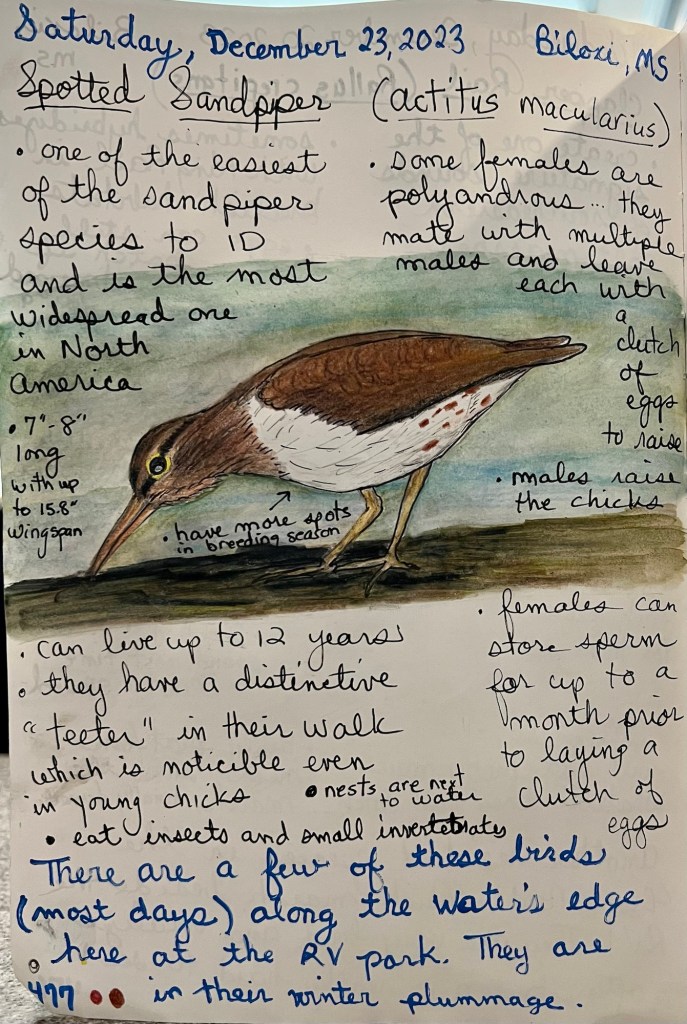 Saturday, December 23, 2023 Biloxi, MS
Spotted Sandpiper (actitus macularius)
• one of the easiest
of the sandpiper
species to ID
and is the most
widespread one
in North
america
• 7"-8"
long
with up
to 15.8"
wingspan
• some females are
polyandrous... they
mate with multiple
males and leave
each with
a
clutch
of
eggs
to raise
• males raise
the chicks
• have more spots
in breeding season
• can live up to 12 years
• they have a distinctive
"teeter" in their walk
which is noticible even
in young chicks
• nests are next
to water
• eat insects and small invertebrates
• females can
store sperm
for up to a
month prior
to laying a
clutch of
eggs
There are a few of these birds
(most days) along the water's edge
here at the RV park. They are
in their winter plummage.
477